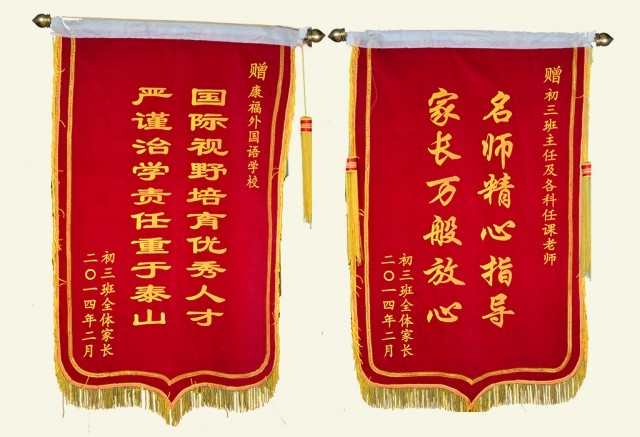 赠康福外国语学校
国际视野培育优秀人才
严谨治学责任重于泰山
初三班全体家长
二〇一四年二月
赠初三班主任及各科任课老师
名师精心指导
家长万般放心
初三班全体家长
二〇一四年二月